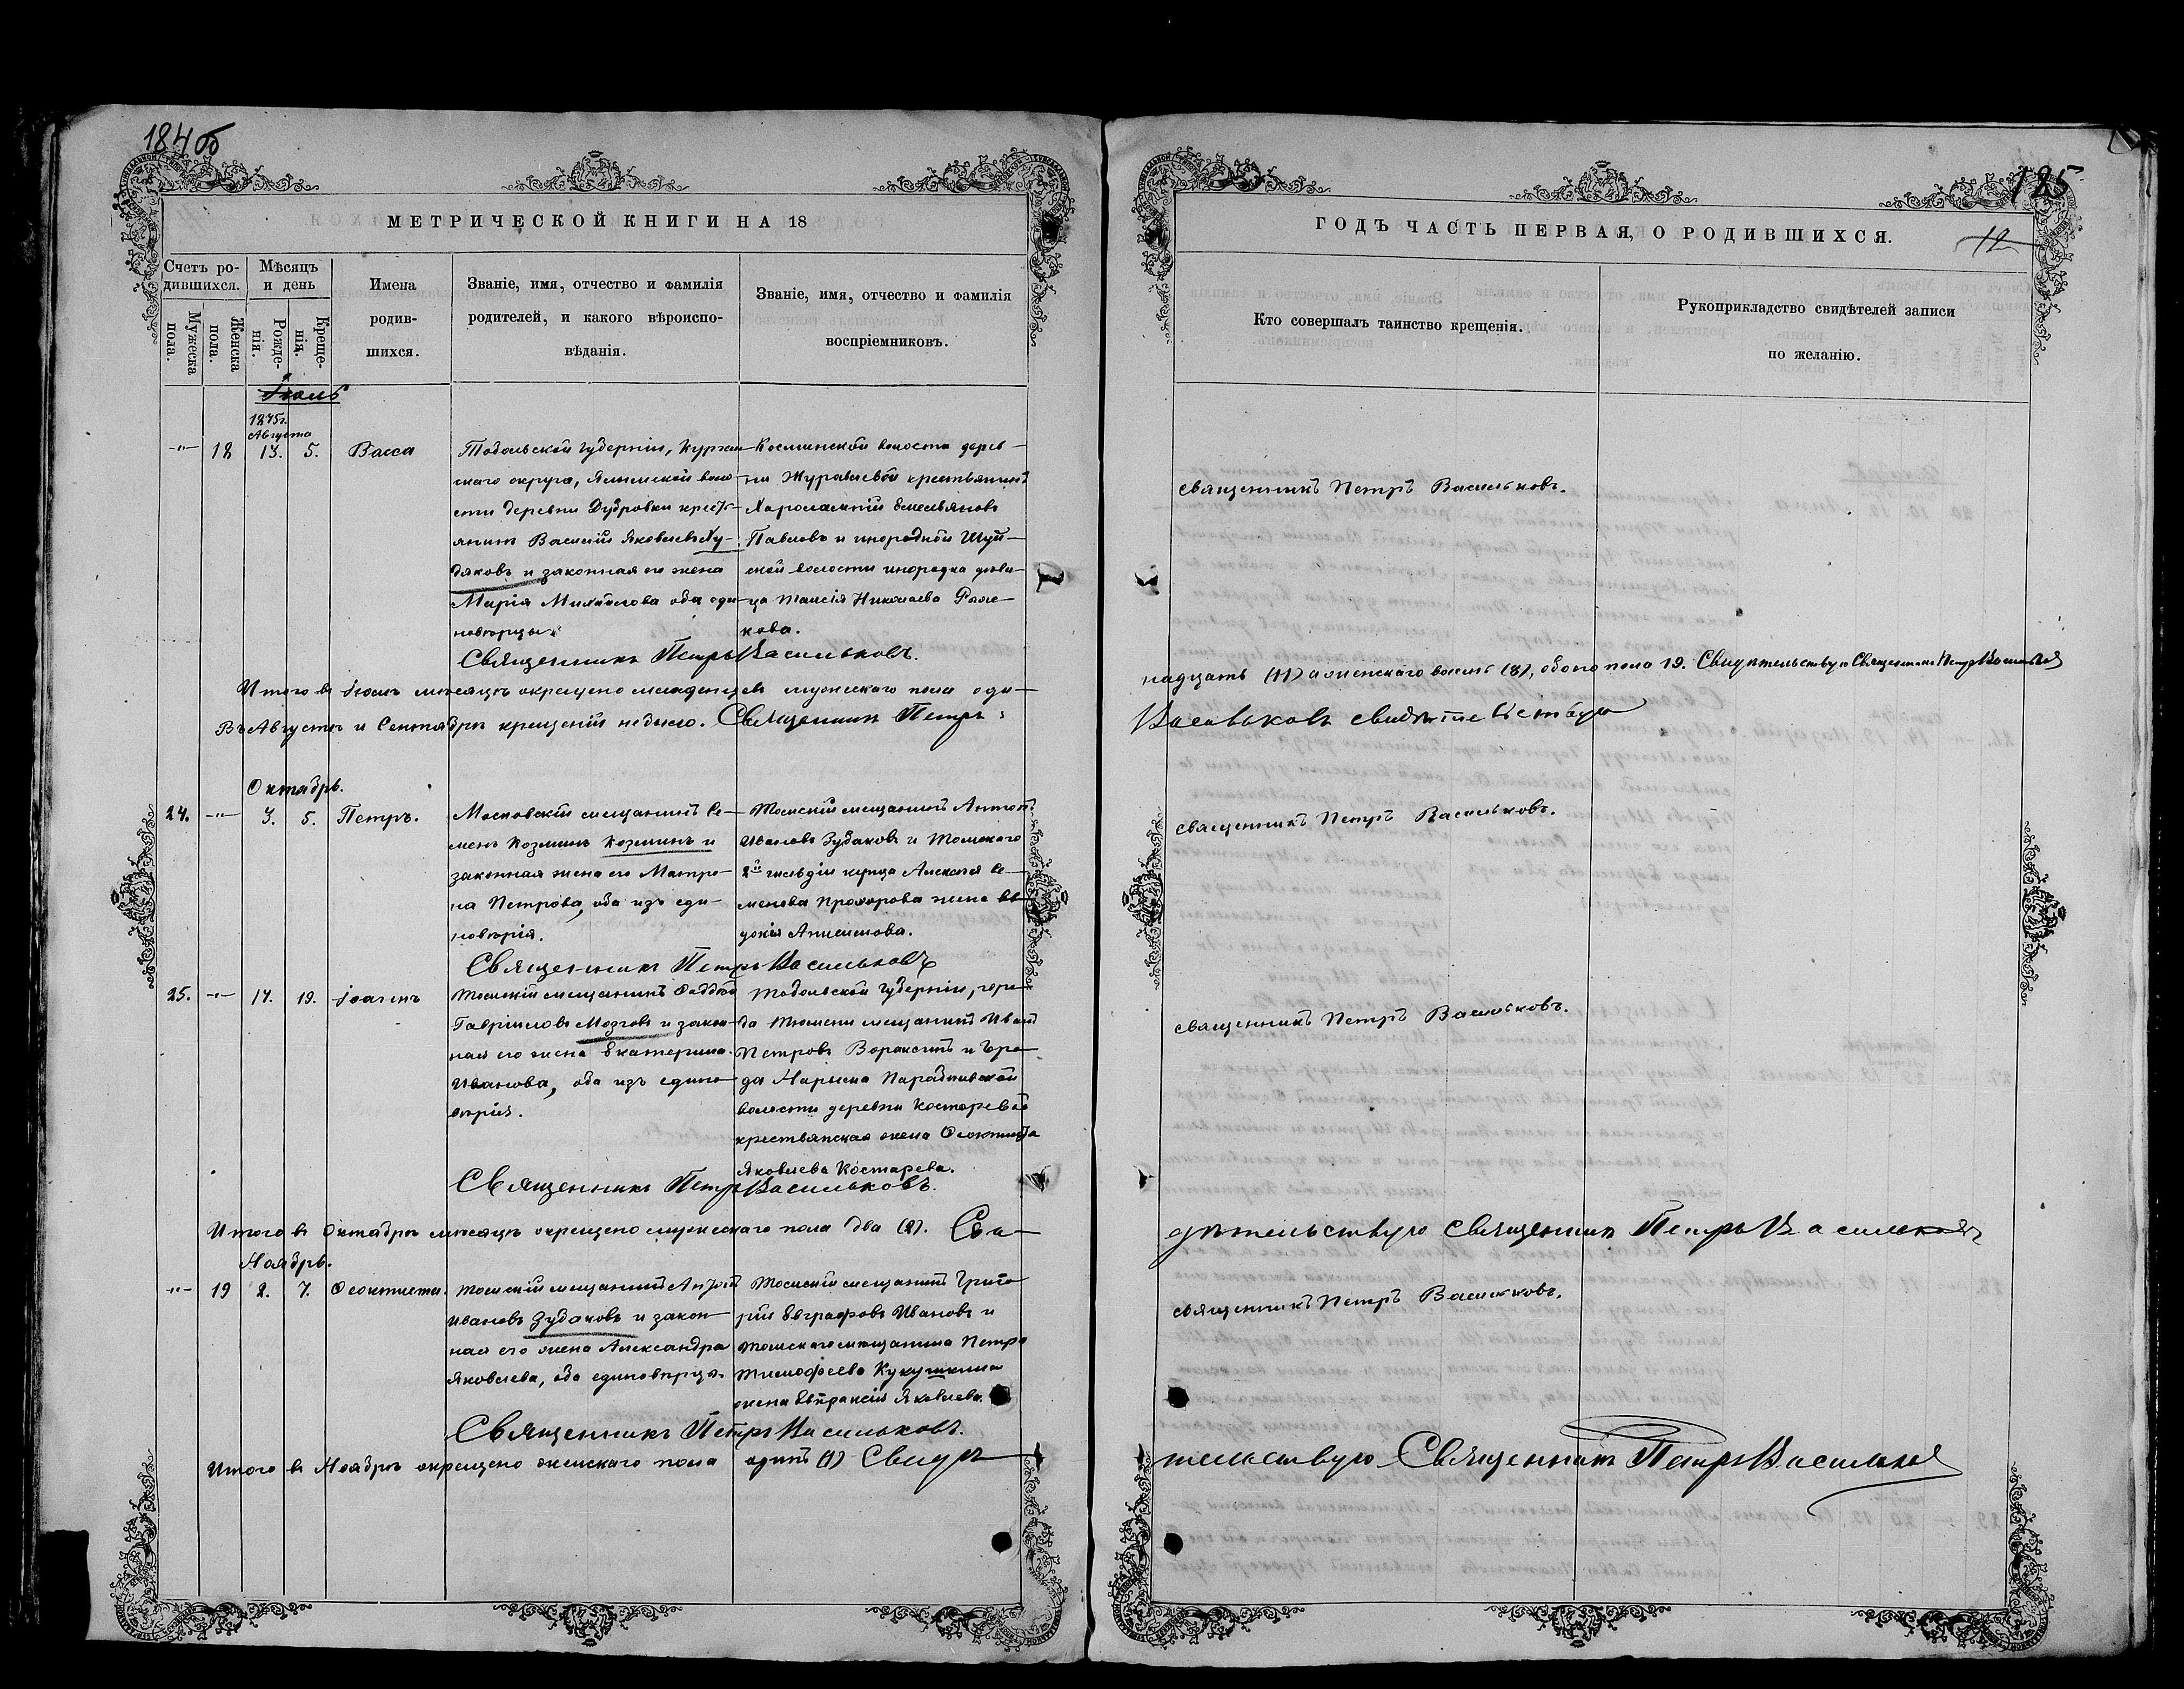 184об
185
МЕТРИЧЕСКОЙ КНИГИ НА 18
ГОДЪ ЧАСТЬ ПЕРВАЯ, О РОДИВШИХСЯ.
12
Счетъ ро-
дившихся.
Мужеска
пола.
Женска
пола.
Мѣсяцъ
и день
Рожде-
нія.
Креще-
нія.
Имена
родив-
шихся.
Званіе, имя, отчество и фамилія
родителей, и какого вѣроиспо-
вѣданія.
Званіе, имя, отчество и фамилія
воспріемниковъ.
Кто совершалъ таинство крещенія.
Рукоприкладство свидѣтелей записи
по желанію.
Іюль
1875г.
Августа
-"- 18 13. 5. Васса
Тобольской губерніи, Курган-
скаго округа, воло-
сти деревни Дубровки кресть-
янинъ Василій Яковлевъ Ху-
дяковъ и законная его жена
Марія Михайлова оба еди-
новѣрцы.
Космынской волости дерев-
ни Журавлевой крестьянинъ
Харлампій Емельяновъ
Павловъ и инородной Шуй-
ской волости инородка дѣви-
ца Таисія Николаева
кова.
Священникъ Петръ Васильковъ.
священникъ Петръ Васильковъ.
Итого въ Іюлѣ мѣсяцѣ окрещено младенцевъ мужескаго пола оди-
надцать (11) а женскаго восемь (8), обоего пола 19. Свидѣтельствую Священникъ Петръ Васильковъ
Въ Августѣ и Сентябрѣ крещеній не было. Священникъ Петръ
Васильковъ свидѣтельствую
Октябрь.
24. -"- 3. 5. Петръ.
Московскій мещанинъ Се-
менъ Козминъ Козминъ и
законная жена его Матро-
на Петрова, оба изъ еди-
новѣрія.
Томскій мещанинъ Антонъ
Ивановъ Зудаковъ и Томскаго
2й гильдіи купца Алексея Се-
менова Прохорова жена Ев-
докія Анисимова.
Священникъ Петръ Васильковъ
священникъ Петръ Васильковъ.
25. -"- 17. 19. Іоаннъ
Томскій мещанинъ Фаддей
Гавриловъ Мозговъ и закон-
ная его жена Екатерина
Иванова, оба изъ едино-
вѣрія.
Тобольской губерніи, горо-
да Тюмени мещанинъ Иванъ
Петровъ Воракинъ и Горо-
да Нарыма Парабельской
волости деревни Костаревой
крестьянская жена Феоктиста
Яковлева Костарева.
Священникъ Петръ Васильковъ.
священникъ Петръ Васильковъ.
Итого въ Октябрѣ мѣсяцѣ окрещено мужескаго пола два (2). Сви-
дѣтельствую священникъ Петръ Васильковъ
Ноябрь.
-"- 19 2. 7. Феоктиста.
Томскій мещанинъ Антонъ
Ивановъ Зудаковъ и закон-
ная его жена Александра
Яковлева, оба единовѣрцы.
Томскій мещанинъ Григо-
рій Евграфовъ Ивановъ и
Томскаго мещанина Петра
Тимофеева Кукушкина
жена Евпраксія Яковлева.
Священникъ Петръ Васильковъ.
священникъ Петръ Васильковъ.
Итого въ Ноябрѣ окрещено женскаго пола одинъ (1) Свидѣ-
тельствую Священникъ Петръ Васильковъ